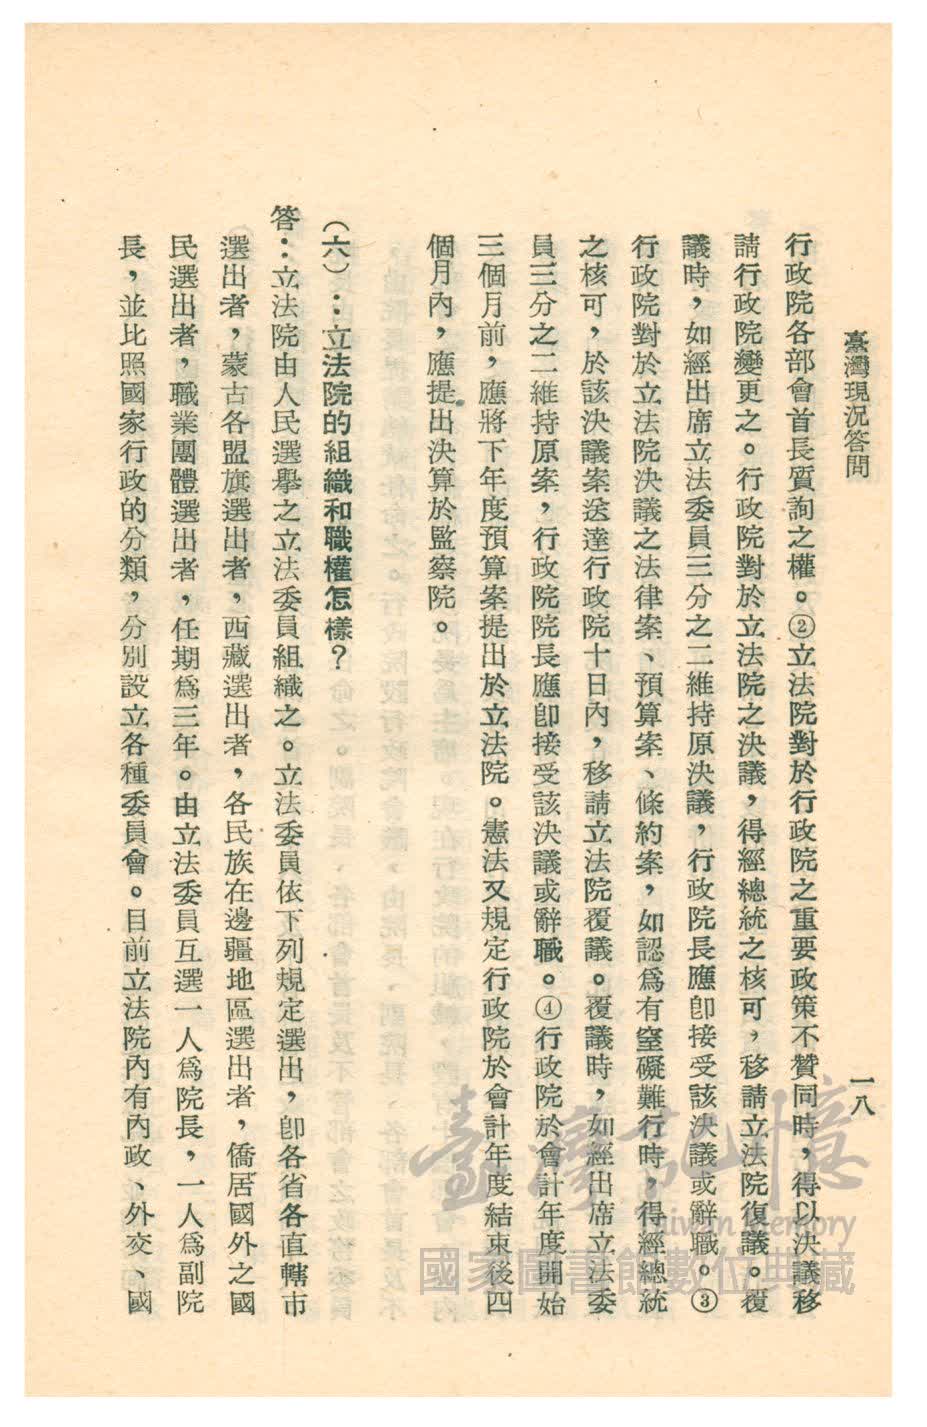 臺灣現況答問
一八
行政院各部會首長質詢之權。②立法院對於行政院之重要政策不贊同時，得以決議移
請行政院變更之。行政院對於立法院之決議，得經總統之核可，移請立法院復議。覆
議時，如經出席立法委員三分之二維持原決議，行政院長應卽接受該決議或辭職。③
行政院對於立法院決議之法律案、預算案、條約案，如認爲有窒礙難行時，得經總統
之核可，於該決議案送達行政院十日內，移請立法院覆議。覆議時，如經出席立法委
員三分之二維持原案，行政院院長應卽接受該決議或辭職。④行政院於會計年度開始
三個月前，應將下年度預算案提出於立法院。憲法又規定行政院於會計年度結束後四
個月內，應提出決算於監察院。
（六）：立法院的組織和職權怎樣？
答：立法院由人民選舉之立法委員組織之。立法委員依下列規定選出，卽各省各直轄市
選出者，蒙古各盟旗選出者，西藏選出者，各民族在邊疆地區選出者，僑居國外之國
民選出者，職業團體選出者，任期爲三年。由立法委員互選一人爲院長，一人爲副院
長，並比照國家行政的分類，分別設立各種委員會。目前立法院內有內政、外交、國
臺灣記憶
Taiwan Memory
國家圖書館數位典藏